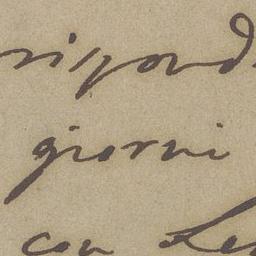 rispond
giorni
con Le